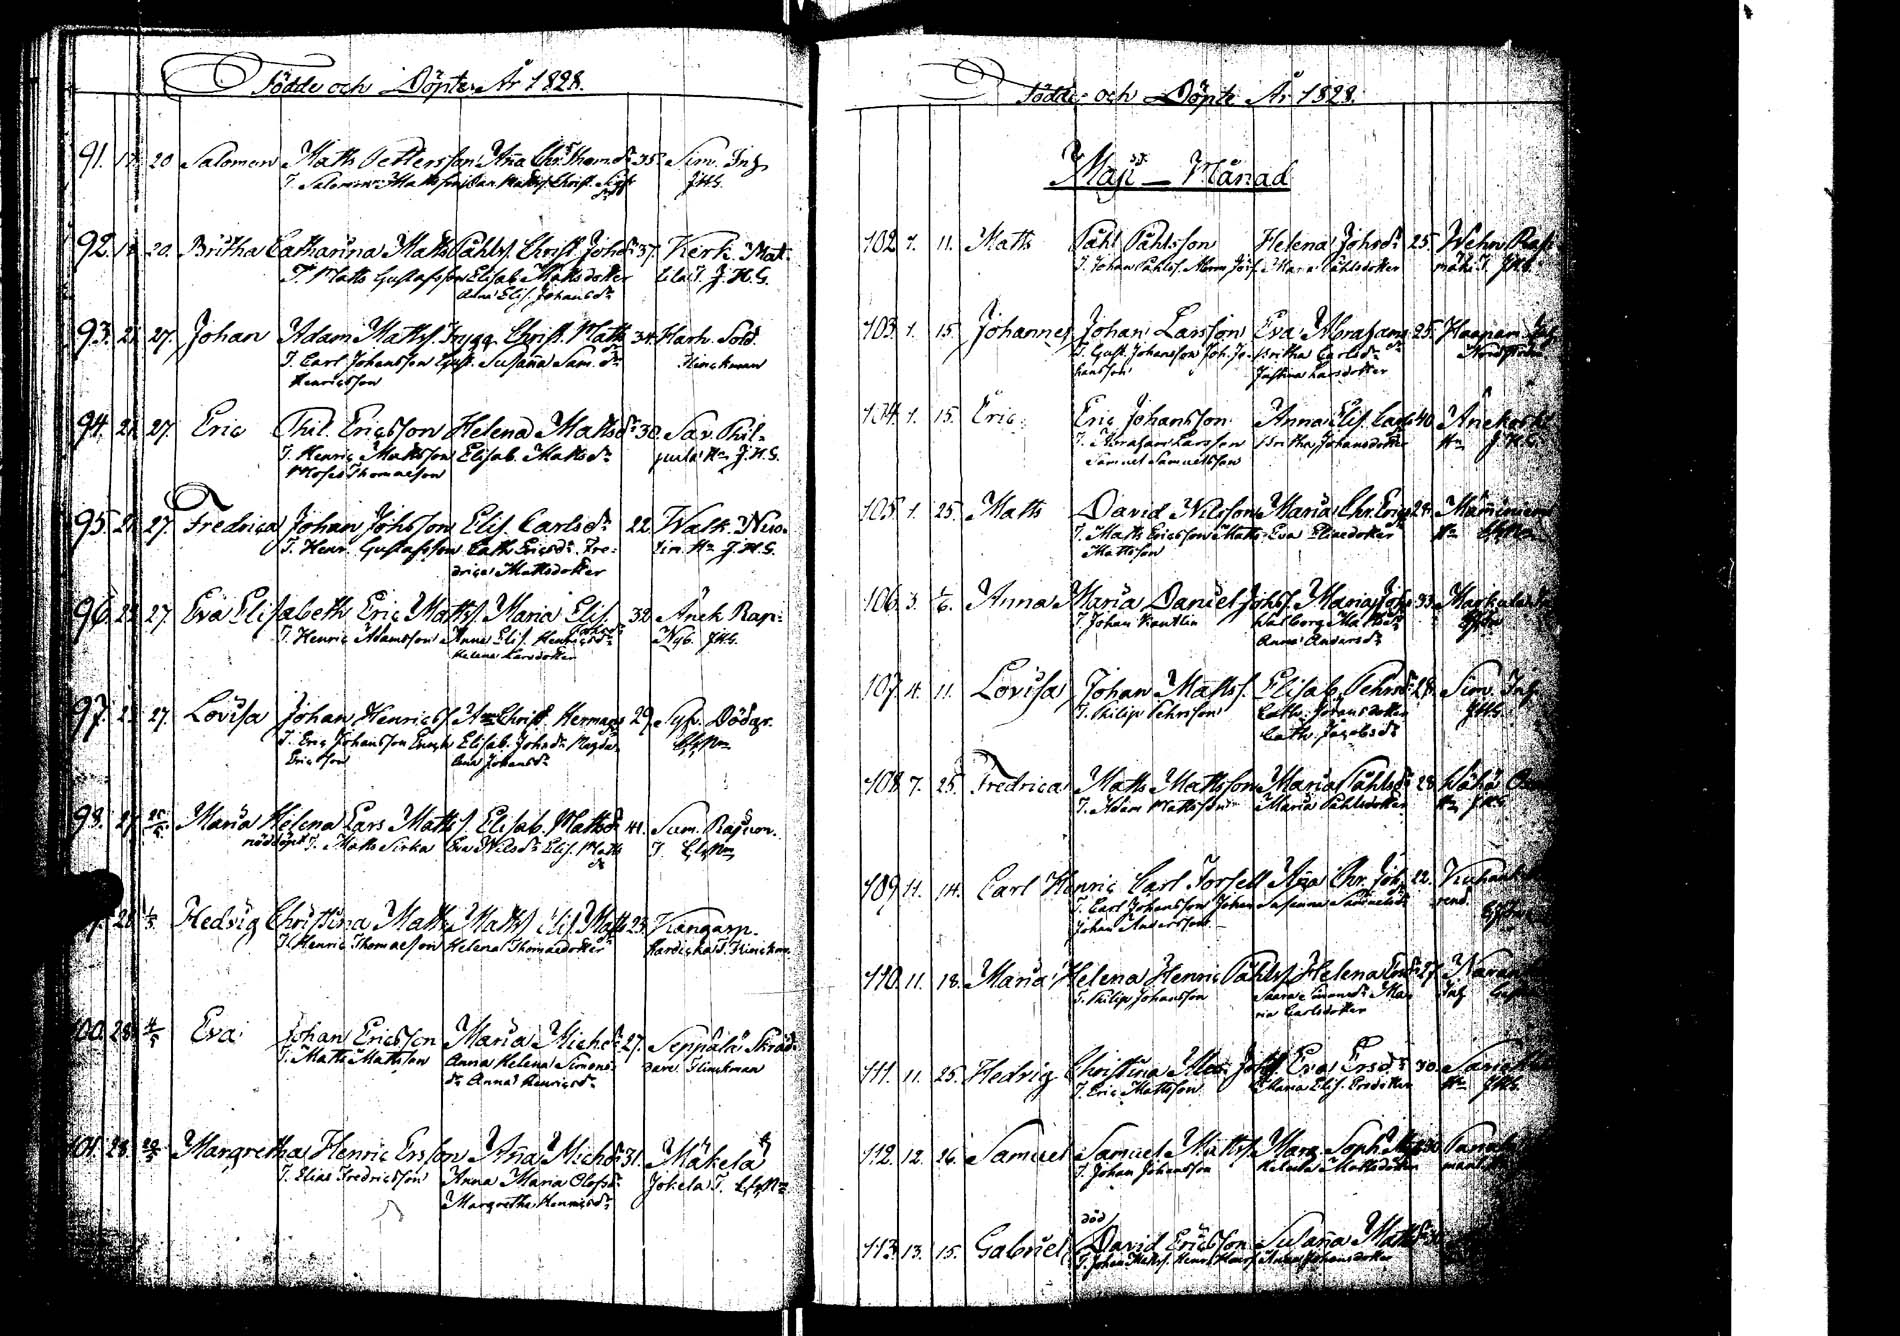 Födde och Döpte År 1828.
91. 17. 20 Salomon Matts Pettersson Aña Chr. Thom. dr 35. Sim. Inh.
T. Salomon Mattsson
92. 18. 20. Britha Catharina Matts Påhlss. Christ. Joh. dr 37. Kerk. Mat-
T. Matts Gustafsson Elisab. Mattsdotter tila T. J.H.G.
Anna Elis. Johansdr
93. 21. 27. Johan Adam Mattss. Trygg Christ. Matts 34. Harh. Sold.
T. Carl Johansson Gust. Susaña Sam. dr Flinckman
Henricsson
94. 21. 27. Eric Phil. Ericsson Helena Matts dr 30. Sav. Phil-
T. Henric Mattsson Elisab. Mattsdr pula Hn J.H.G.
Moses Thomasson
95. 21. 27. Fredrica Johan Johsson Elis. Carlsdr 22. Walk.
T. Henr. Gustafsson Cath. Ericsdr Fre- Hn J.H.G.
drica Mattsdotter
96. 27. Eva Elisabeth Eric Mattss. Maria Elis. 32. Änek. Rap-
T. Henric Adamsson Anna Elis. Henricsdr Nyb. J.H.G.
Helena Larsdotter
97. 27. Lovisa Johan Henricss. Christ. Hermans 29.
T. Eric Johansson Enoch Elisab. Johsdr Magda-
Ericsson lena Johansdr
98. 27. Maria Helena Lars Mattss. Elisab. Matts dr 41. Sum.
nöddöpt T. Matts Sirka Eva Nilsdr Elis. Matts
dr
28. 1/5 Hedvig Christina Matts Mattss. Elis. Matts 23. Kangasp.
T. Henric Thomasson Helena Thomasdotter T. Flinckm.
100. 28. 4/5 Eva Johan Ericsson Maria Mich. dr 27. Seppälä Skräd-
T. Matts Mattsson Anna Helena Simons- dare Flinckman
dr Anna Henricsdr
101. 28. Margretha Henric Ersson Aña Mich. dr 31. Mäkelä
T. Elias Fredricsson Anna Maria Olofsdr Jokela T.
Margretha Henricsdr
Födde och Döpte År 1828.
Maji Månad
102. 1. 11. Matts Påhl Påhlsson Helena Johsdr 25. Wehn. Rasi
T. Johan Påhlss. Maria Påhlsdotter mäki T. J.H.G.
103. 1. 15. Johannes Johan Larsson Eva Abrahams 25.
T. Gust. Johansson Joh. Jo- Britha Carlsdr
hansson Justina Larsdotter
104. 1. 15. Eric Eric Johansson Anna Elis. Carls 40.
T. Abraham Larsson Britha Johansdotter Hn J.H.G.
Samuel Samuelsson
105. 1. 25. Matts David Nilsson Maria Chr. Erics 28.
T. Matts Ericsson Matts Eva Eliedotter Hn
Mattsson
106. 3. Anna Maria Daniel Johss. Maria Johs 33.
T. Johan Walborg Mattsdr
Anna Andersdr
107. 4. 11. Lovisa Johan Mattss. Elisab. Pehrsdr 28. Sim. Inh.
T. Philip Pehrsson Cath. Johansdotter J.H.G.
Cath. Jacobsdr
108. 7. 25. Fredrica Matts Mattsson Maria Påhlsdr 28
T. Adam Mattsson Maria Påhlsdotter Hn J.H.G.
109. 11. 14. Carl Henric Carl Forsell Aña Chr. Joh. 22.
T. Carl Johansson Johan Susanna Samuelsdr
Johan Andersson
110. 11. 18. Maria Helena Henric Påhlss. Helena 27.
T. Philip Johansson Saara Simonsdr Ma- Inh.
ria Carlsdotter
111. 11. 25. Hedvig Christina Alex. Johss. Eva Ersdr 30.
T. Eric Mattsson Maria Elis. Ersdotter Hn J.H.G.
112. 12. 26. Samuel Samuel Mattss. Marg. Soph. 30
T. Johan Johansson Helena Mattsdotter
död
113. 13. 15. Gabriel David Ericsson Susaña Matts
T. Johan Mattss. Anna Johansdotter